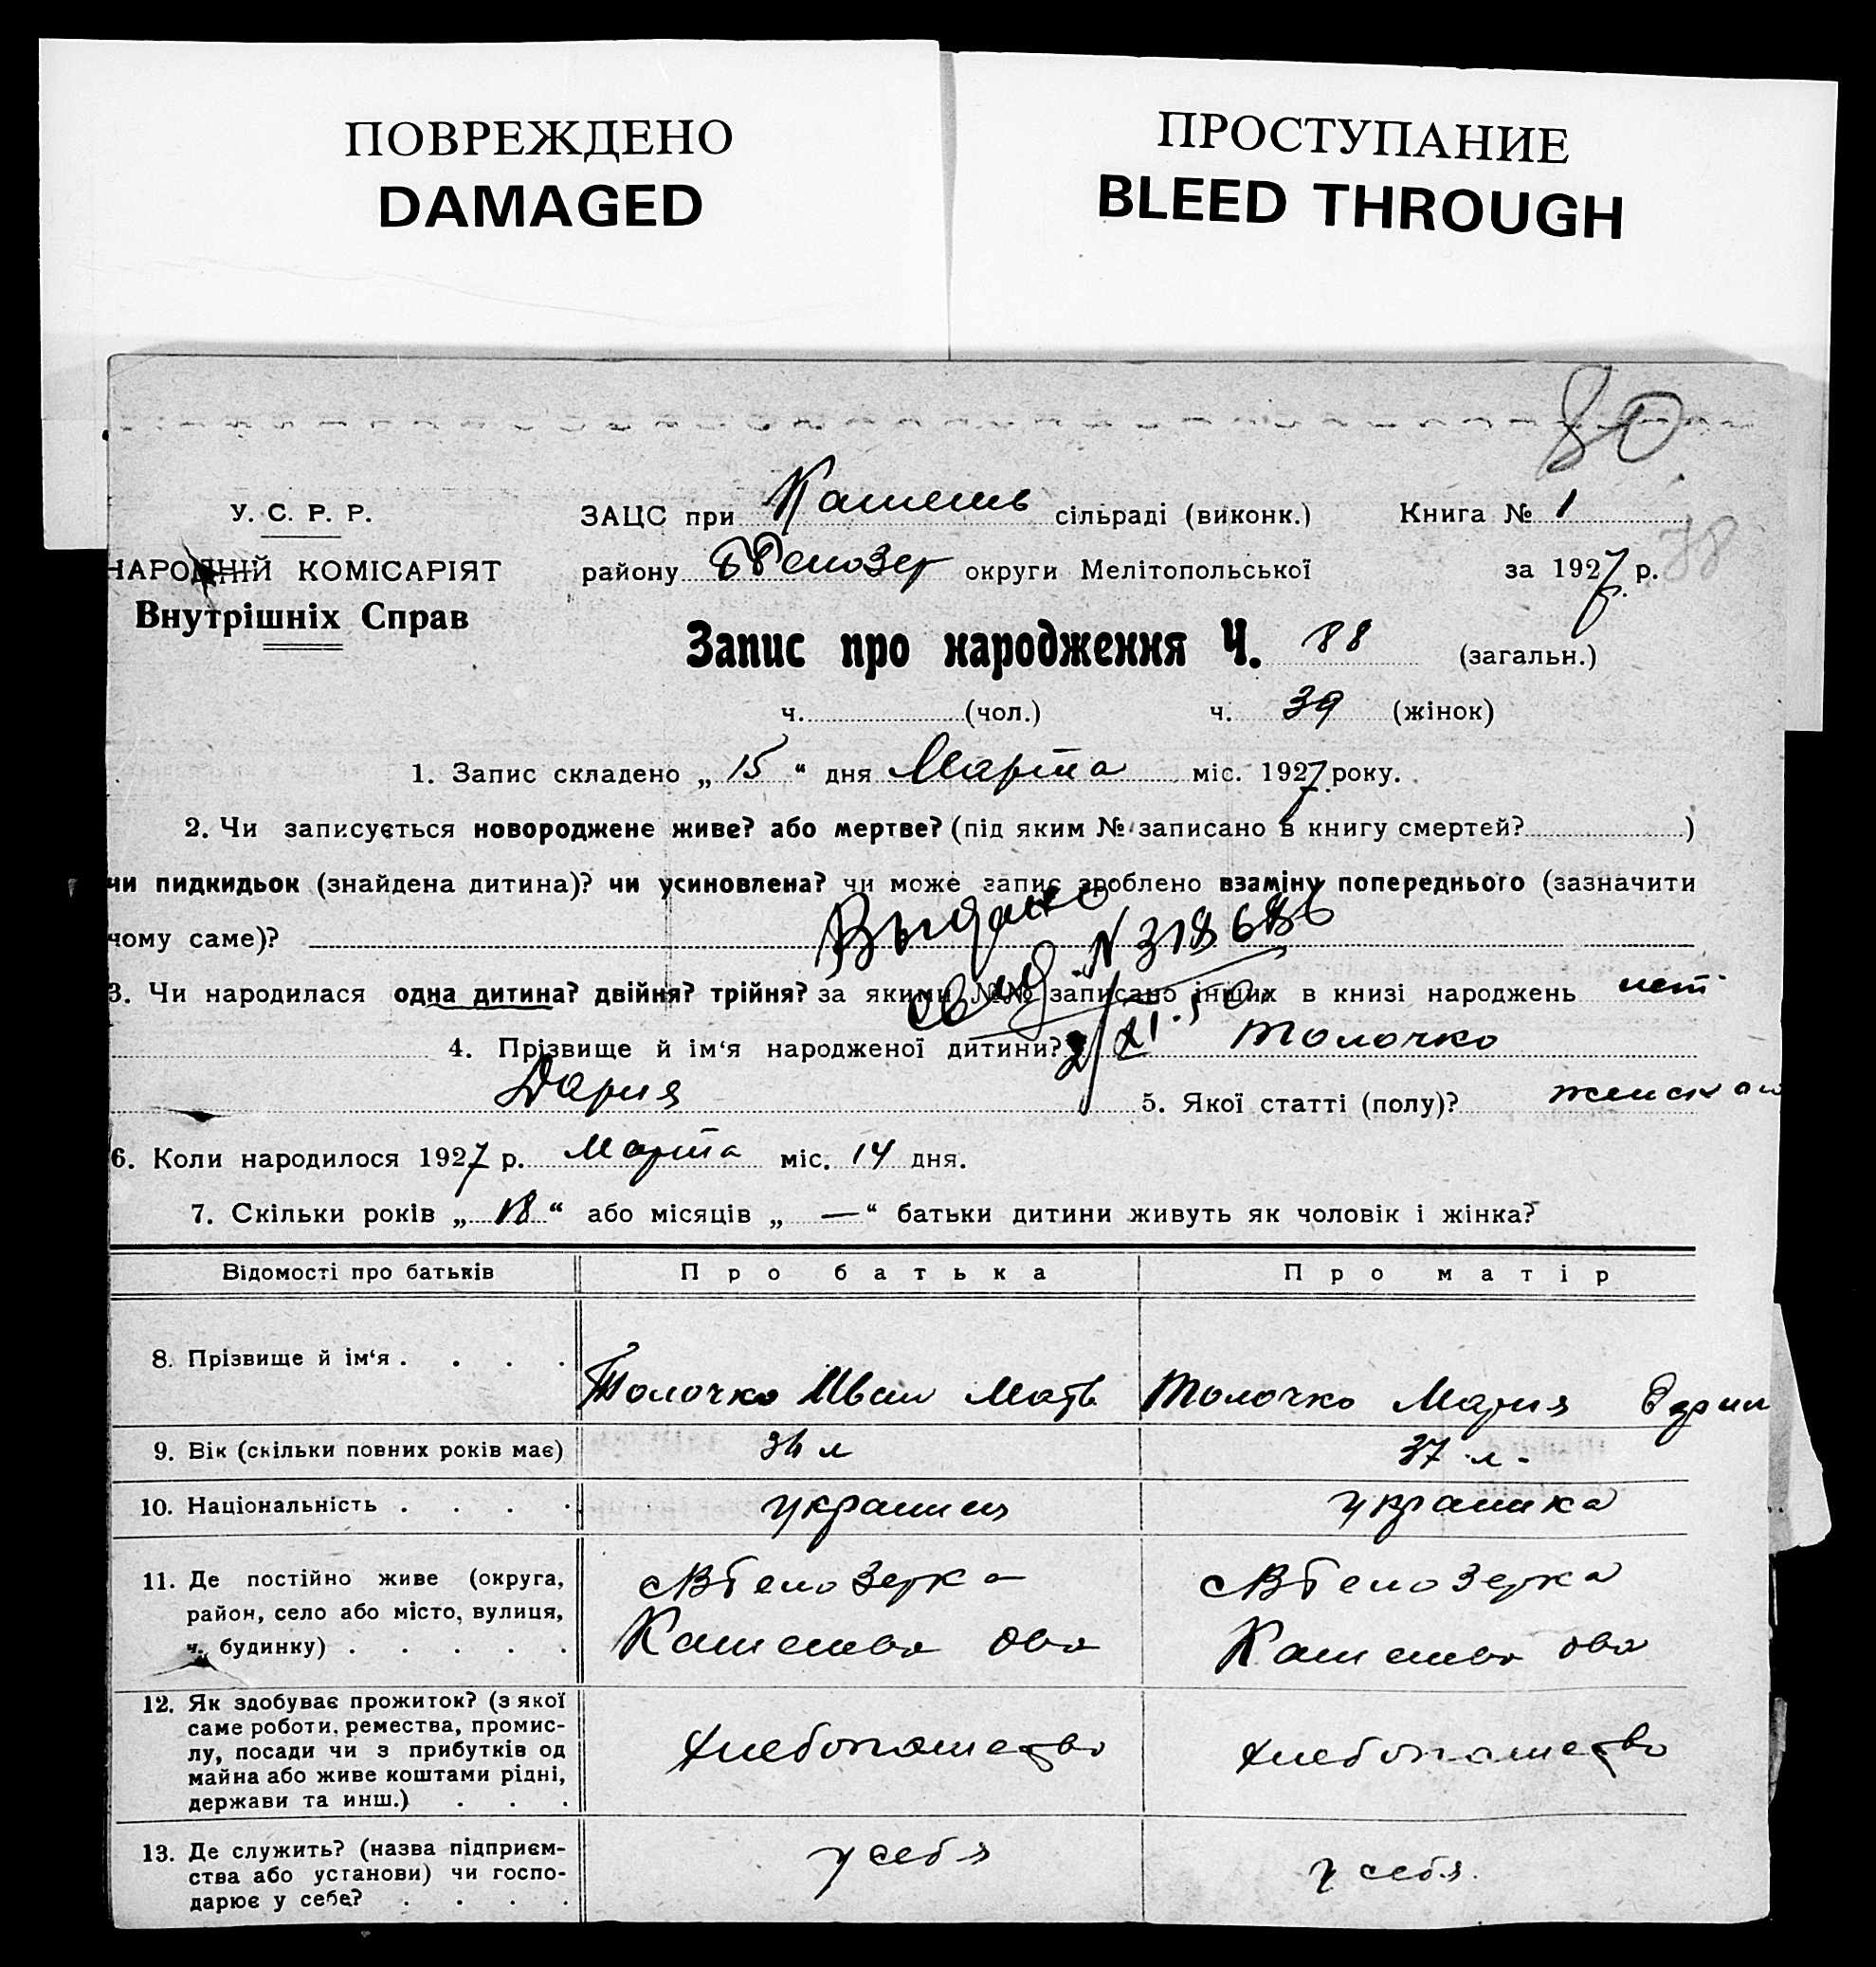 ПОВРЕЖДЕНО
DAMAGED
ПРОСТУПАНИЕ
BLEED THROUGH
80
У. С. Р. Р.
ЗАЦС при сільраді (виконк.) Книга № 1
78
НАРОДНІЙ КОМІСАРІЯТ
району Белозер округи Мелітопольської за 1927 р.
Внутрішніх Справ
Запис про народження Ч. 88 (загальн.)
ч. (чол.) ч. 39 (жінок)
1. Запис складено „ 15 “ дня Марта міс. 1927 року.
2. Чи записується новороджене живе? або мертве? (під яким № записано в книгу смертей? )
чи пидкидьок (знайдена дитина)? чи усиновлена? чи може запис зроблено взаміну попереднього (зазначити
чому саме)?
Выдано
свид. N 318686
3. Чи народилася одна дитина? двійня? трійня? за якими №№ записано інших в книзі народжень нет
2/XI.50.
4. Прізвище й ім‘я народженої дитини? Толочко
Дария 5. Якої статті (полу)? женская
6. Коли народилося 1927 р. Марта міс. 14 дня.
7. Скільки років „ 18 “ або місяців „ — “ батьки дитини живуть як чоловік і жінка?
Відомості про батьків Про батька Про матір
8. Прізвище й ім‘я . . . . Толочко Иван Матв Толочко Мария
9. Вік (скільки повних років має) 36 л 37 л.
10. Національність . . . . украинец украинка
11. Де постійно живе (округа,
район, село або місто, вулиця,
ч. будинку) . . . . .
с Белозерка
с Белозерка
12. Як здобуває прожиток? (з якої
саме роботи, ремества, промис-
лу, посади чи з прибутків од
майна або живе коштами рідні,
держави та инш.) . . .
хлебопашество
хлебопашество
13. Де служить? (назва підприєм-
ства або установи) чи госпо-
дарює у себе? . . . .
у себя
у себя.